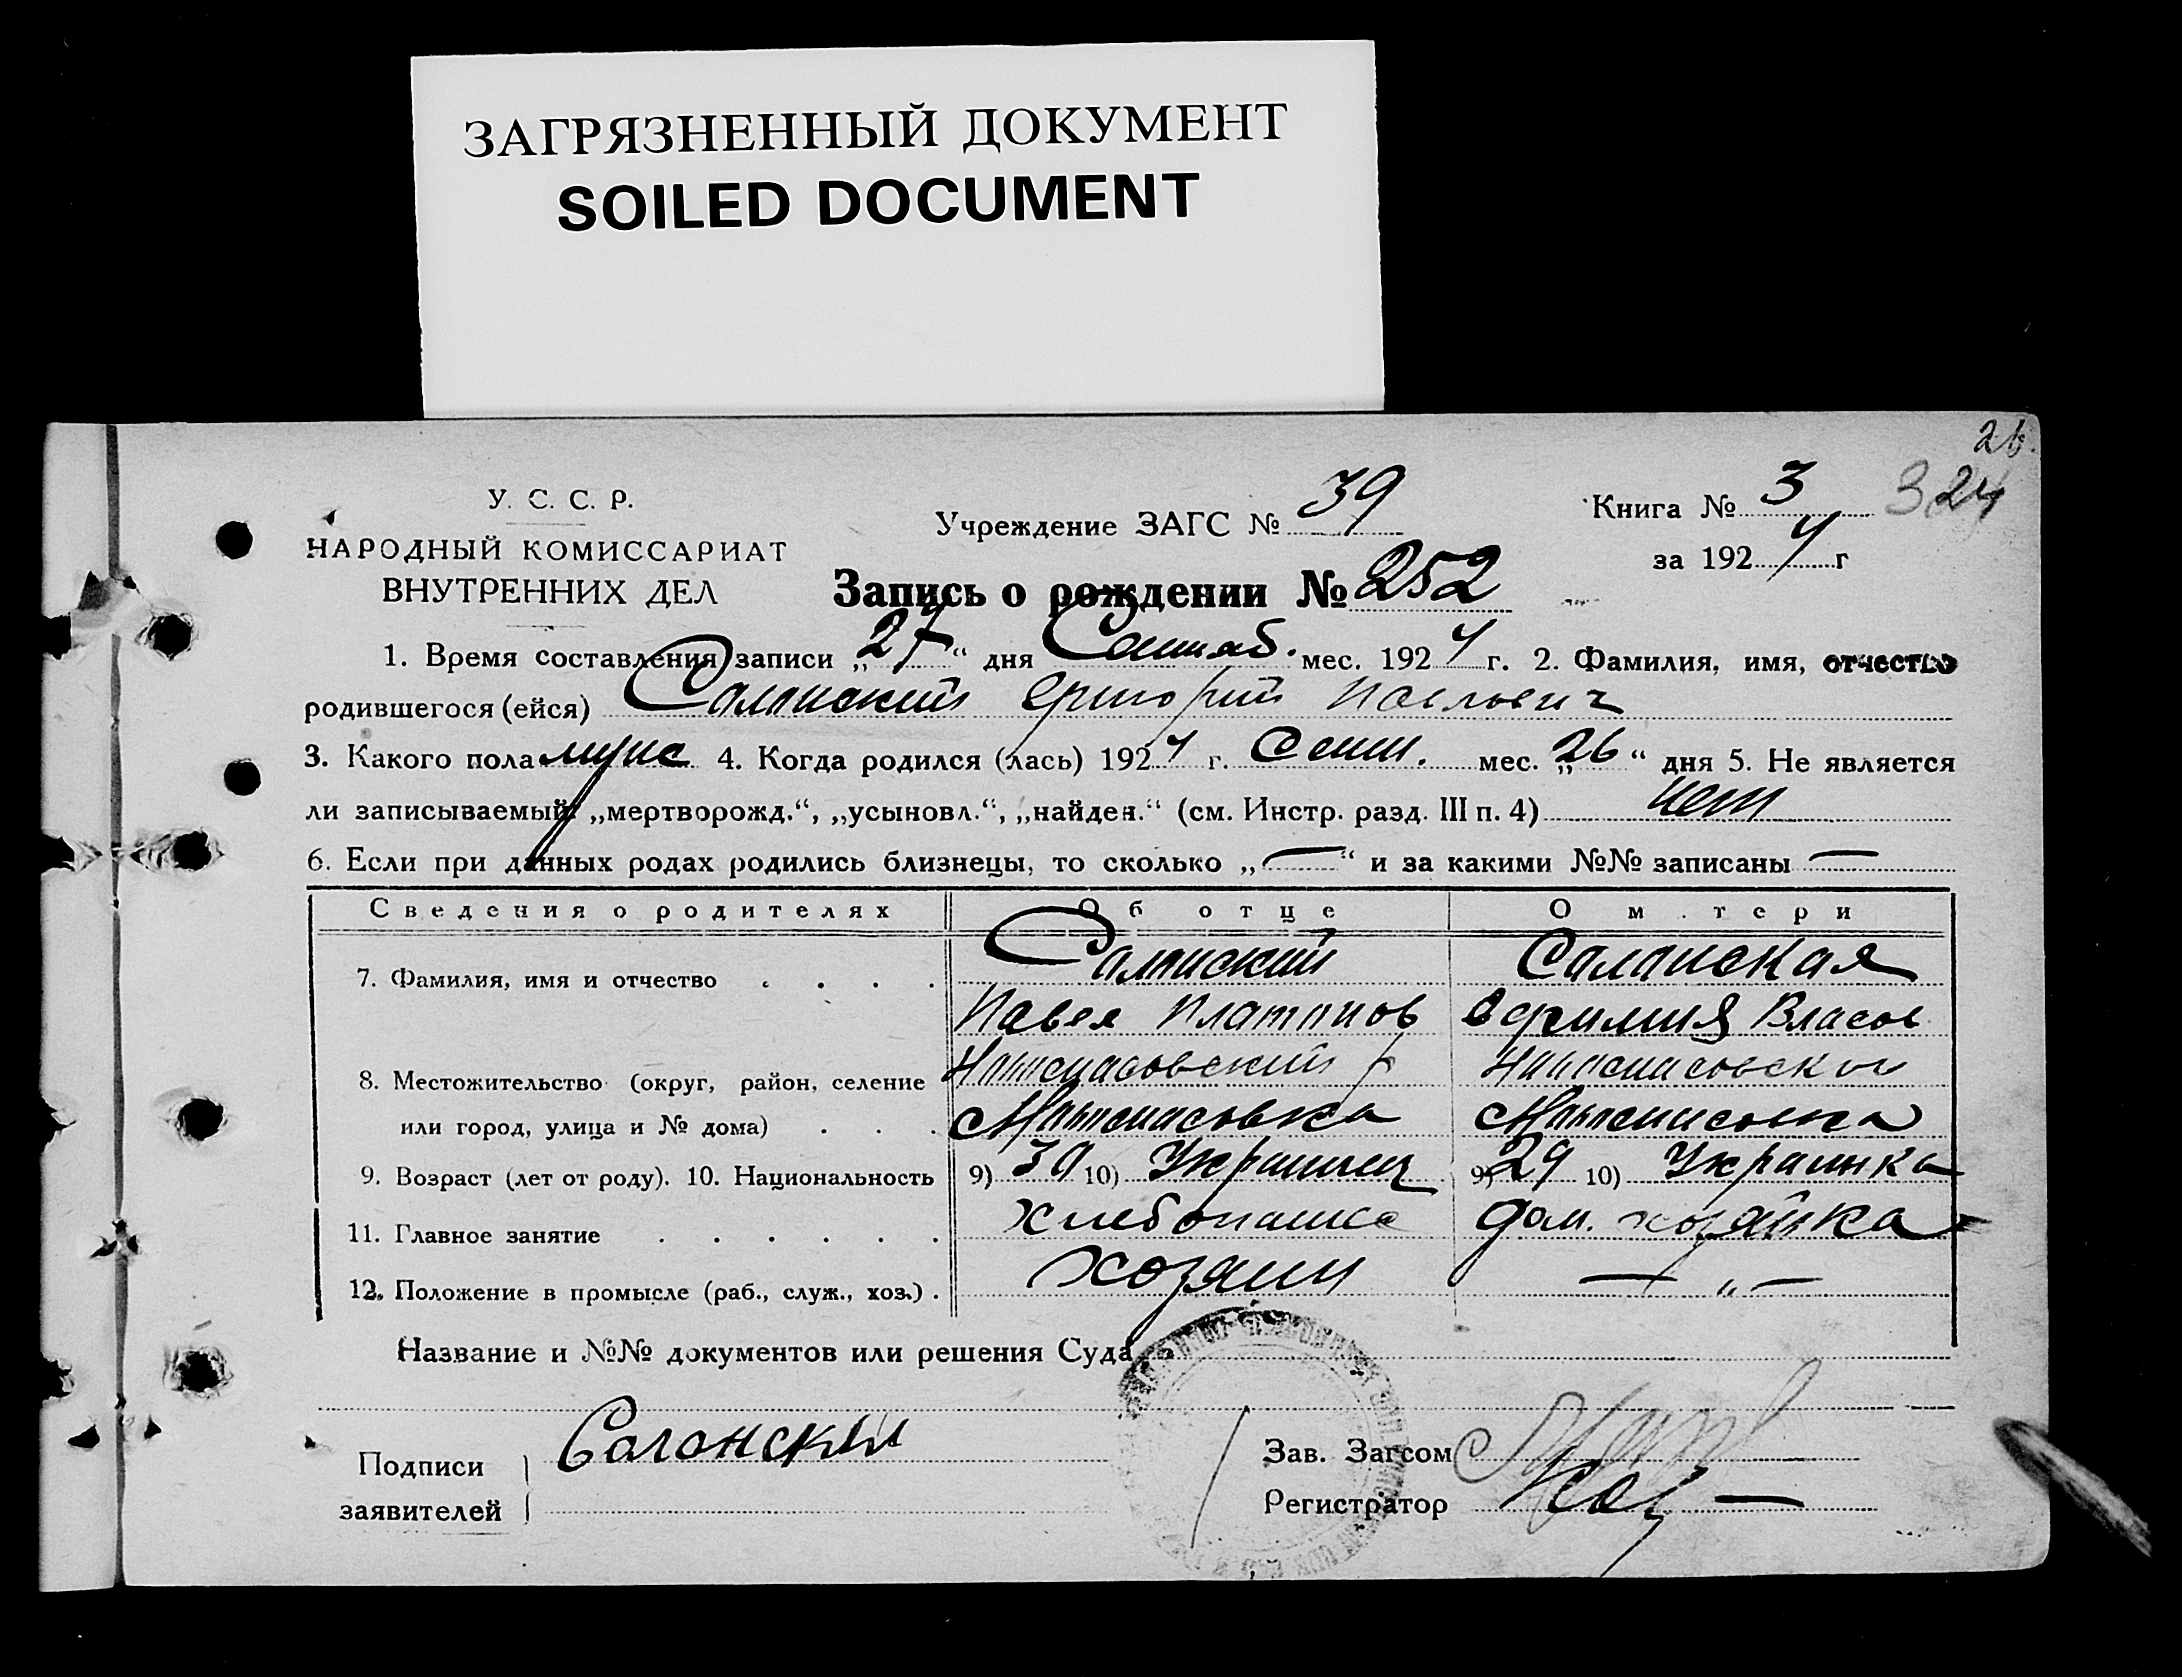 ЗАГРЯЗНЕННЫЙ ДОКУМЕНТ
SOILED DOCUMENT
26.
У. С. С. Р.
НАРОДНЫЙ КОМИССАРИАТ
ВНУТРЕННИХ ДЕЛ
Учреждение ЗАГС № 39
Книга № 3 324
за 1924 г
Запись о рождении № 252
1. Время составления записи „27“ дня Сентяб. мес. 1924 г. 2. Фамилия, имя, отчество
родившегося (ейся) Салонский Григорий Павлович
3. Какого пола муже 4. Когда родился (лась) 1924 г. Сент. мес. „26“ дня 5. Не является
ли записываемый: „мертворожд.“, „усыновл.“, „найден.“ (см. Инстр. разд. III п. 4) нет
6. Если при данных родах родились близнецы, то сколько „—“ и за какими №№ записаны —
Сведения о родителях Об отце О м.тери
7. Фамилия, имя и отчество . . . . Салонский Салонская
Павел Платонов Власов
8. Местожительство (округ, район, селение
или город, улица и № дома) . . .
9. Возраст (лет от роду). 10. Национальность 9) 30 10) Украинец 9) 29 10) Украинка
11. Главное занятие . . . . . . хлебопашес дом. хозяйка
12. Положение в промысле (раб., служ., хоз.) . хозяин — „ —
Название и №№ документов или решения Суда
Подписи
заявителей
Салонский
Зав. Загсом
Регистратор